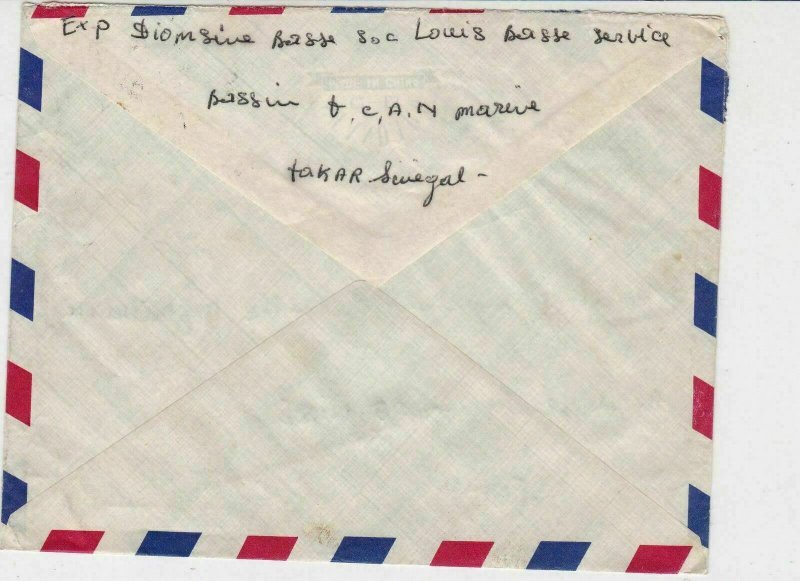 Exp Diomsine Basse soc Louis Basse service
Bassin D.C.A.N marine
DAKAR Sénégal -